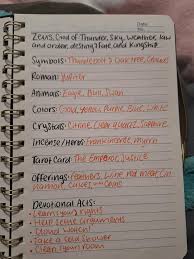 Date:
Zeus, God of Thunder, Sky, Weather, law
and order, destiny & fate, and Kingship.
Symbols: Thunderbolt, Oak tree,
Roman: Jupiter
Animals: Eagle, Bull, Swan
Colors: Gold, Yellow, Purple, Blue, White
Crystals: Citrine, Clear Quartz, Sapphire
Incense/Herbs: Frankincense, Myrrh
Tarot Card: The Emperor, Justice
Offerings: Feathers, Wine, red meat, Cin
namon,
Devotional Acts:
• Learn your rights
• Help settle arguments
• Cloud watch
• Take a cold shower
• Clean your room